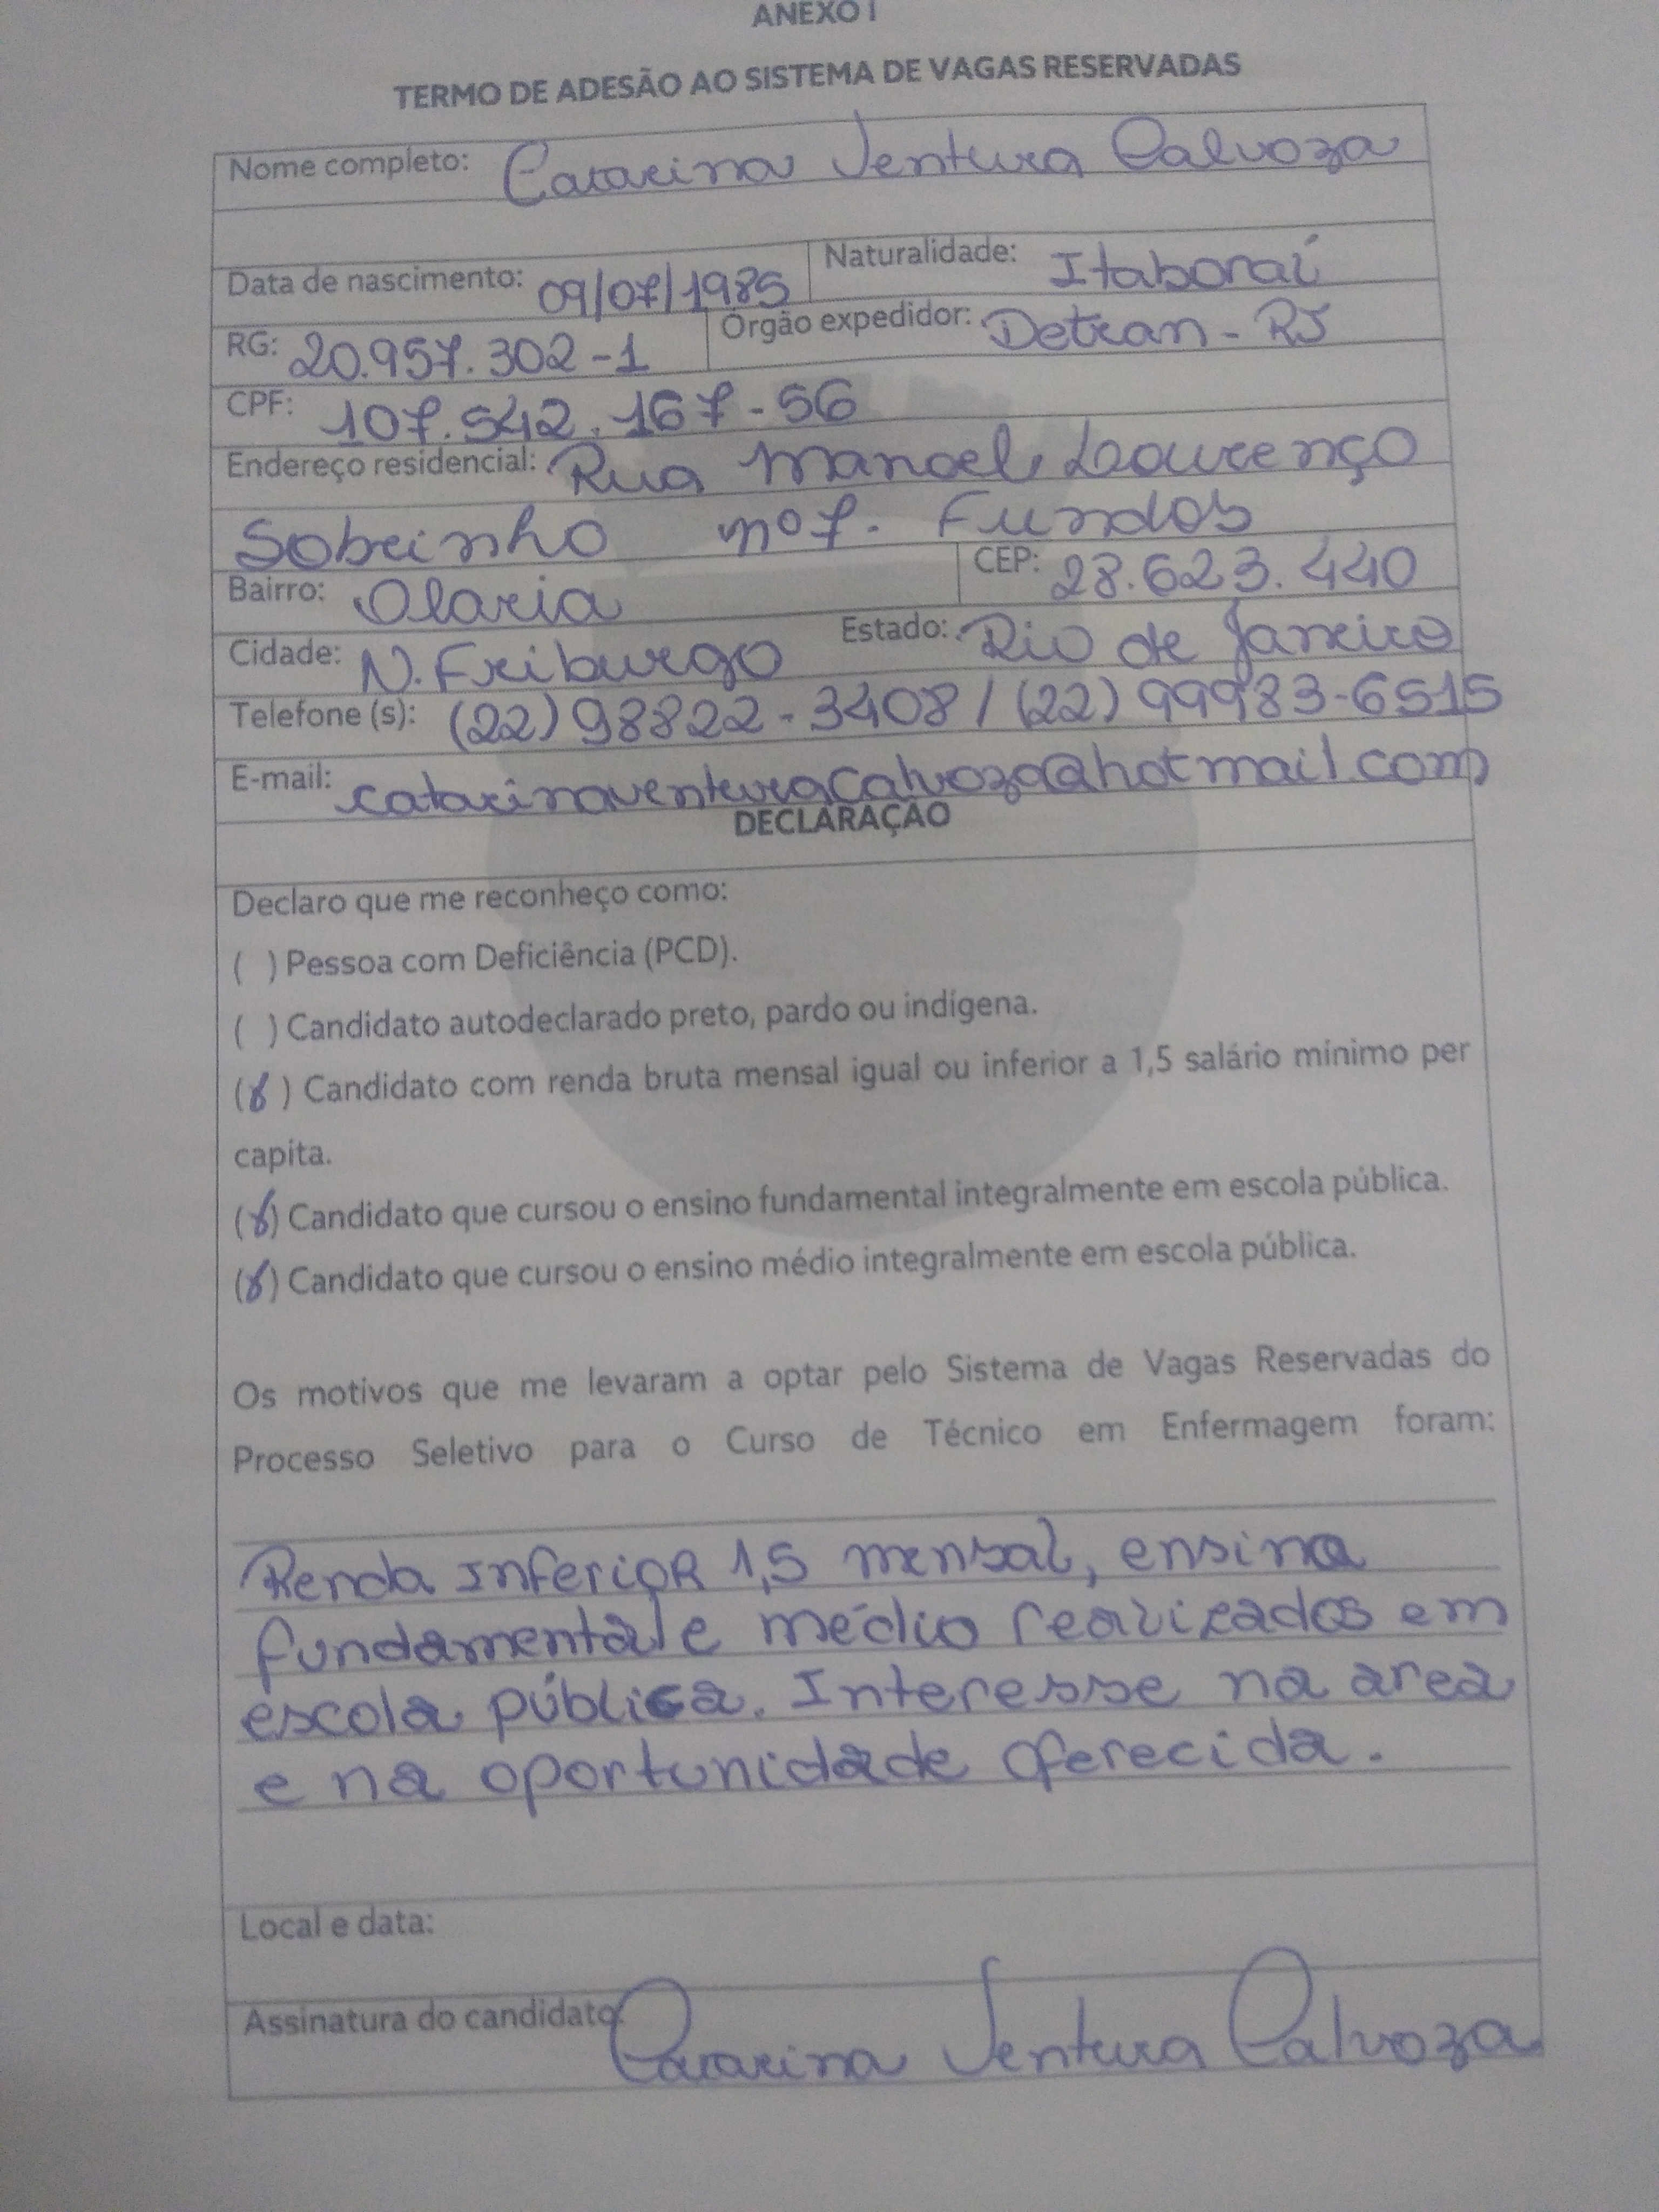 ANEXO I
TERMO DE ADESÃO AO SISTEMA DE VAGAS RESERVADAS
Nome completo: Catarina Ventura Calvoza
Data de nascimento: 09/07/1985 Naturalidade: Itaboraí
RG: 20.957.302-1 Órgão expedidor: Detran-RJ
CPF: 107.542.167-56
Endereço residencial: Rua Manoel Lourenço
Sobrinho nº 7. Fundos
Bairro: Olaria CEP: 28.623.440
Cidade: N. Friburgo Estado: Rio de Janeiro
Telefone (s): (22) 98822-3408 / (22) 99983-6515
E-mail: catarinaventuracalvoza@hotmail.com
DECLARAÇÃO
Declaro que me reconheço como:
( ) Pessoa com Deficiência (PCD).
( ) Candidato autodeclarado preto, pardo ou indígena.
(x) Candidato com renda bruta mensal igual ou inferior a 1,5 salário mínimo per
capita.
(x) Candidato que cursou o ensino fundamental integralmente em escola pública.
(x) Candidato que cursou o ensino médio integralmente em escola pública.
Os motivos que me levaram a optar pelo Sistema de Vagas Reservadas do
Processo Seletivo para o Curso de Técnico em Enfermagem foram:
Renda Inferior 1,5 mensal, ensino
fundamental e médio realizados em
escola pública. Interesse na area
e na oportunidade oferecida.
Local e data:
Assinatura do candidato: Catarina Ventura Calvoza